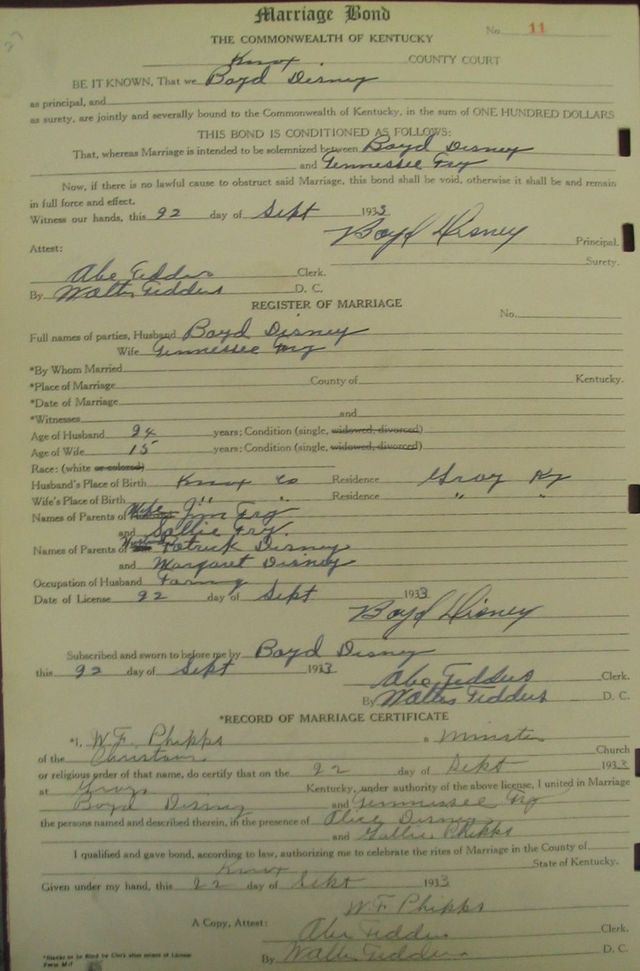 Marriage Bond
No. 11
THE COMMONWEALTH OF KENTUCKY
Knox COUNTY COURT
BE IT KNOWN, That we Boyd Disney
as principal, and
as surety, are jointly and severally bound to the Commonwealth of Kentucky, in the sum of ONE HUNDRED DOLLARS
THIS BOND IS CONDITIONED AS FOLLOWS:
That, whereas Marriage is intended to be solemnized between Boyd Disney
and Tennessee Fry
Now, if there is no lawful cause to obstruct said Marriage, this bond shall be void, otherwise it shall be and remain
in full force and effect.
Witness our hands, this 22 day of Sept 1933
Boyd Disney Principal.
Attest: Surety.
Abe Geddes Clerk.
By Walter Geddes D. C.
REGISTER OF MARRIAGE
No.
Full names of parties, Husband Boyd Disney
Wife Tennessee Fry
*By Whom Married
*Place of Marriage County of Kentucky.
*Date of Marriage
*Witnesses and
Age of Husband 24 years; Condition (single, widowed, divorced)
Age of Wife 15 years; Condition (single, widowed, divorced)
Race: (white or colored)
Husband's Place of Birth Knox Co Residence Gray Ky
Wife's Place of Birth " " Residence " "
Names of Parents of Wife Jim Fry
and Sallie Fry.
Names of Parents of Patrick Disney
and Margaret Disney
Occupation of Husband Farming
Date of License 22 day of Sept 1933
Boyd Disney
Subscribed and sworn to before me by Boyd Disney
this 22 day of Sept 1933
Abe Geddes Clerk.
By Walter Geddes D. C.
*RECORD OF MARRIAGE CERTIFICATE
*I, W.F. Phipps a Minister
of the Christian Church
or religious order of that name, do certify that on the 22 day of Sept 1933
at Grays Kentucky, under authority of the above license, I united in Marriage
Boyd Disney and Tennessee Fry
the persons named and described therein, in the presence of Alice Disney
and Sallie Phipps
I qualified and gave bond, according to law, authorizing me to celebrate the rites of Marriage in the County of
Knox State of Kentucky.
Given under my hand, this 22 day of Sept 1933
W.F. Phipps
A Copy, Attest: Abe Geddes Clerk.
By Walter Geddes D. C.